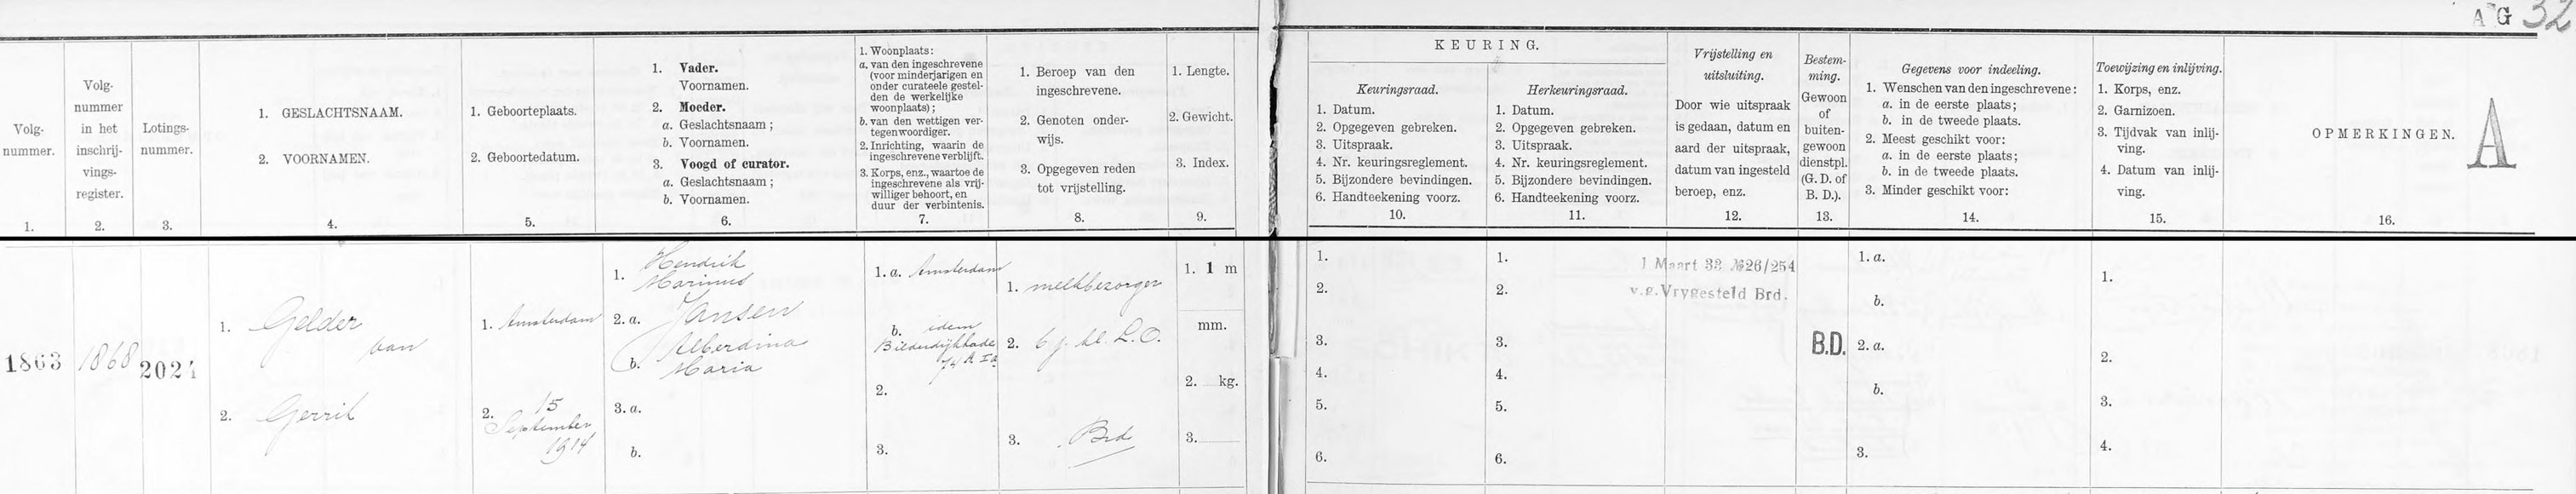 A G 32
Volg-
nummer.
1.
Volg-
nummer
in het
inschrij-
vings-
register.
2.
Lotings-
nummer.
3.
1. GESLACHTSNAAM.
2. VOORNAMEN.
4.
1. Geboorteplaats.
2. Geboortedatum.
5.
1. Vader.
Voornamen.
2. Moeder.
a. Geslachtsnaam;
b. Voornamen.
3. Voogd of curator.
a. Geslachtsnaam;
b. Voornamen.
6.
1. Woonplaats:
a. van den ingeschrevene
(voor minderjarigen en
onder curateele gestel-
den de werkelijke
woonplaats);
b. van den wettigen ver-
tegenwoordiger.
2. Inrichting, waarin de
ingeschrevene verblijft.
3. Korps, enz., waartoe de
ingeschrevene als vrij-
williger behoort, en
duur der verbintenis.
7.
1. Beroep van den
ingeschrevene.
2. Genoten onder-
wijs.
3. Opgegeven reden
tot vrijstelling.
8.
1. Lengte.
2. Gewicht.
3. Index.
9.
KEURING.
Keuringsraad.
1. Datum.
2. Opgegeven gebreken.
3. Uitspraak.
4. Nr. keuringsreglement.
5. Bijzondere bevindingen.
6. Handteekening voorz.
10.
Herkeuringsraad.
1. Datum.
2. Opgegeven gebreken.
3. Uitspraak.
4. Nr. keuringsreglement.
5. Bijzondere bevindingen.
6. Handteekening voorz.
11.
Vrijstelling en
uitsluiting.
Door wie uitspraak
is gedaan, datum en
aard der uitspraak,
datum van ingesteld
beroep, enz.
12.
Bestem-
ming.
Gewoon
of
buiten-
gewoon
dienstpl.
(G. D. of
B. D.).
13.
Gegevens voor indeeling.
1. Wenschen van den ingeschrevene:
a. in de eerste plaats;
b. in de tweede plaats.
2. Meest geschikt voor:
a. in de eerste plaats;
b. in de tweede plaats.
3. Minder geschikt voor:
14.
Toewijzing en inlijving.
1. Korps, enz.
2. Garnizoen.
3. Tijdvak van inlij-
ving.
4. Datum van inlij-
ving.
15.
OPMERKINGEN.
16.
A
1863
1868
2024
1. Gelder
van
2. Gerrit
1. Amsterdam
2. 15
September
1914
1. Hendrik
Marinus
2. a. Jansen
b. Alberdina
Maria
3. a.
b.
1. a. Amsterdam
b. idem
Bilderdijkkade
2.
3.
1. melkbezorger
2. 6 j. kl. L.O.
3. Brd
1. 1 m
mm.
2. kg.
3.
1.
2.
3.
4.
5.
6.
1.
2.
3.
4.
5.
6.
1 Maart 33 №26/254
v.g. Vrygesteld Brd.
B.D.
1. a.
b.
2. a.
b.
3.
1.
2.
3.
4.